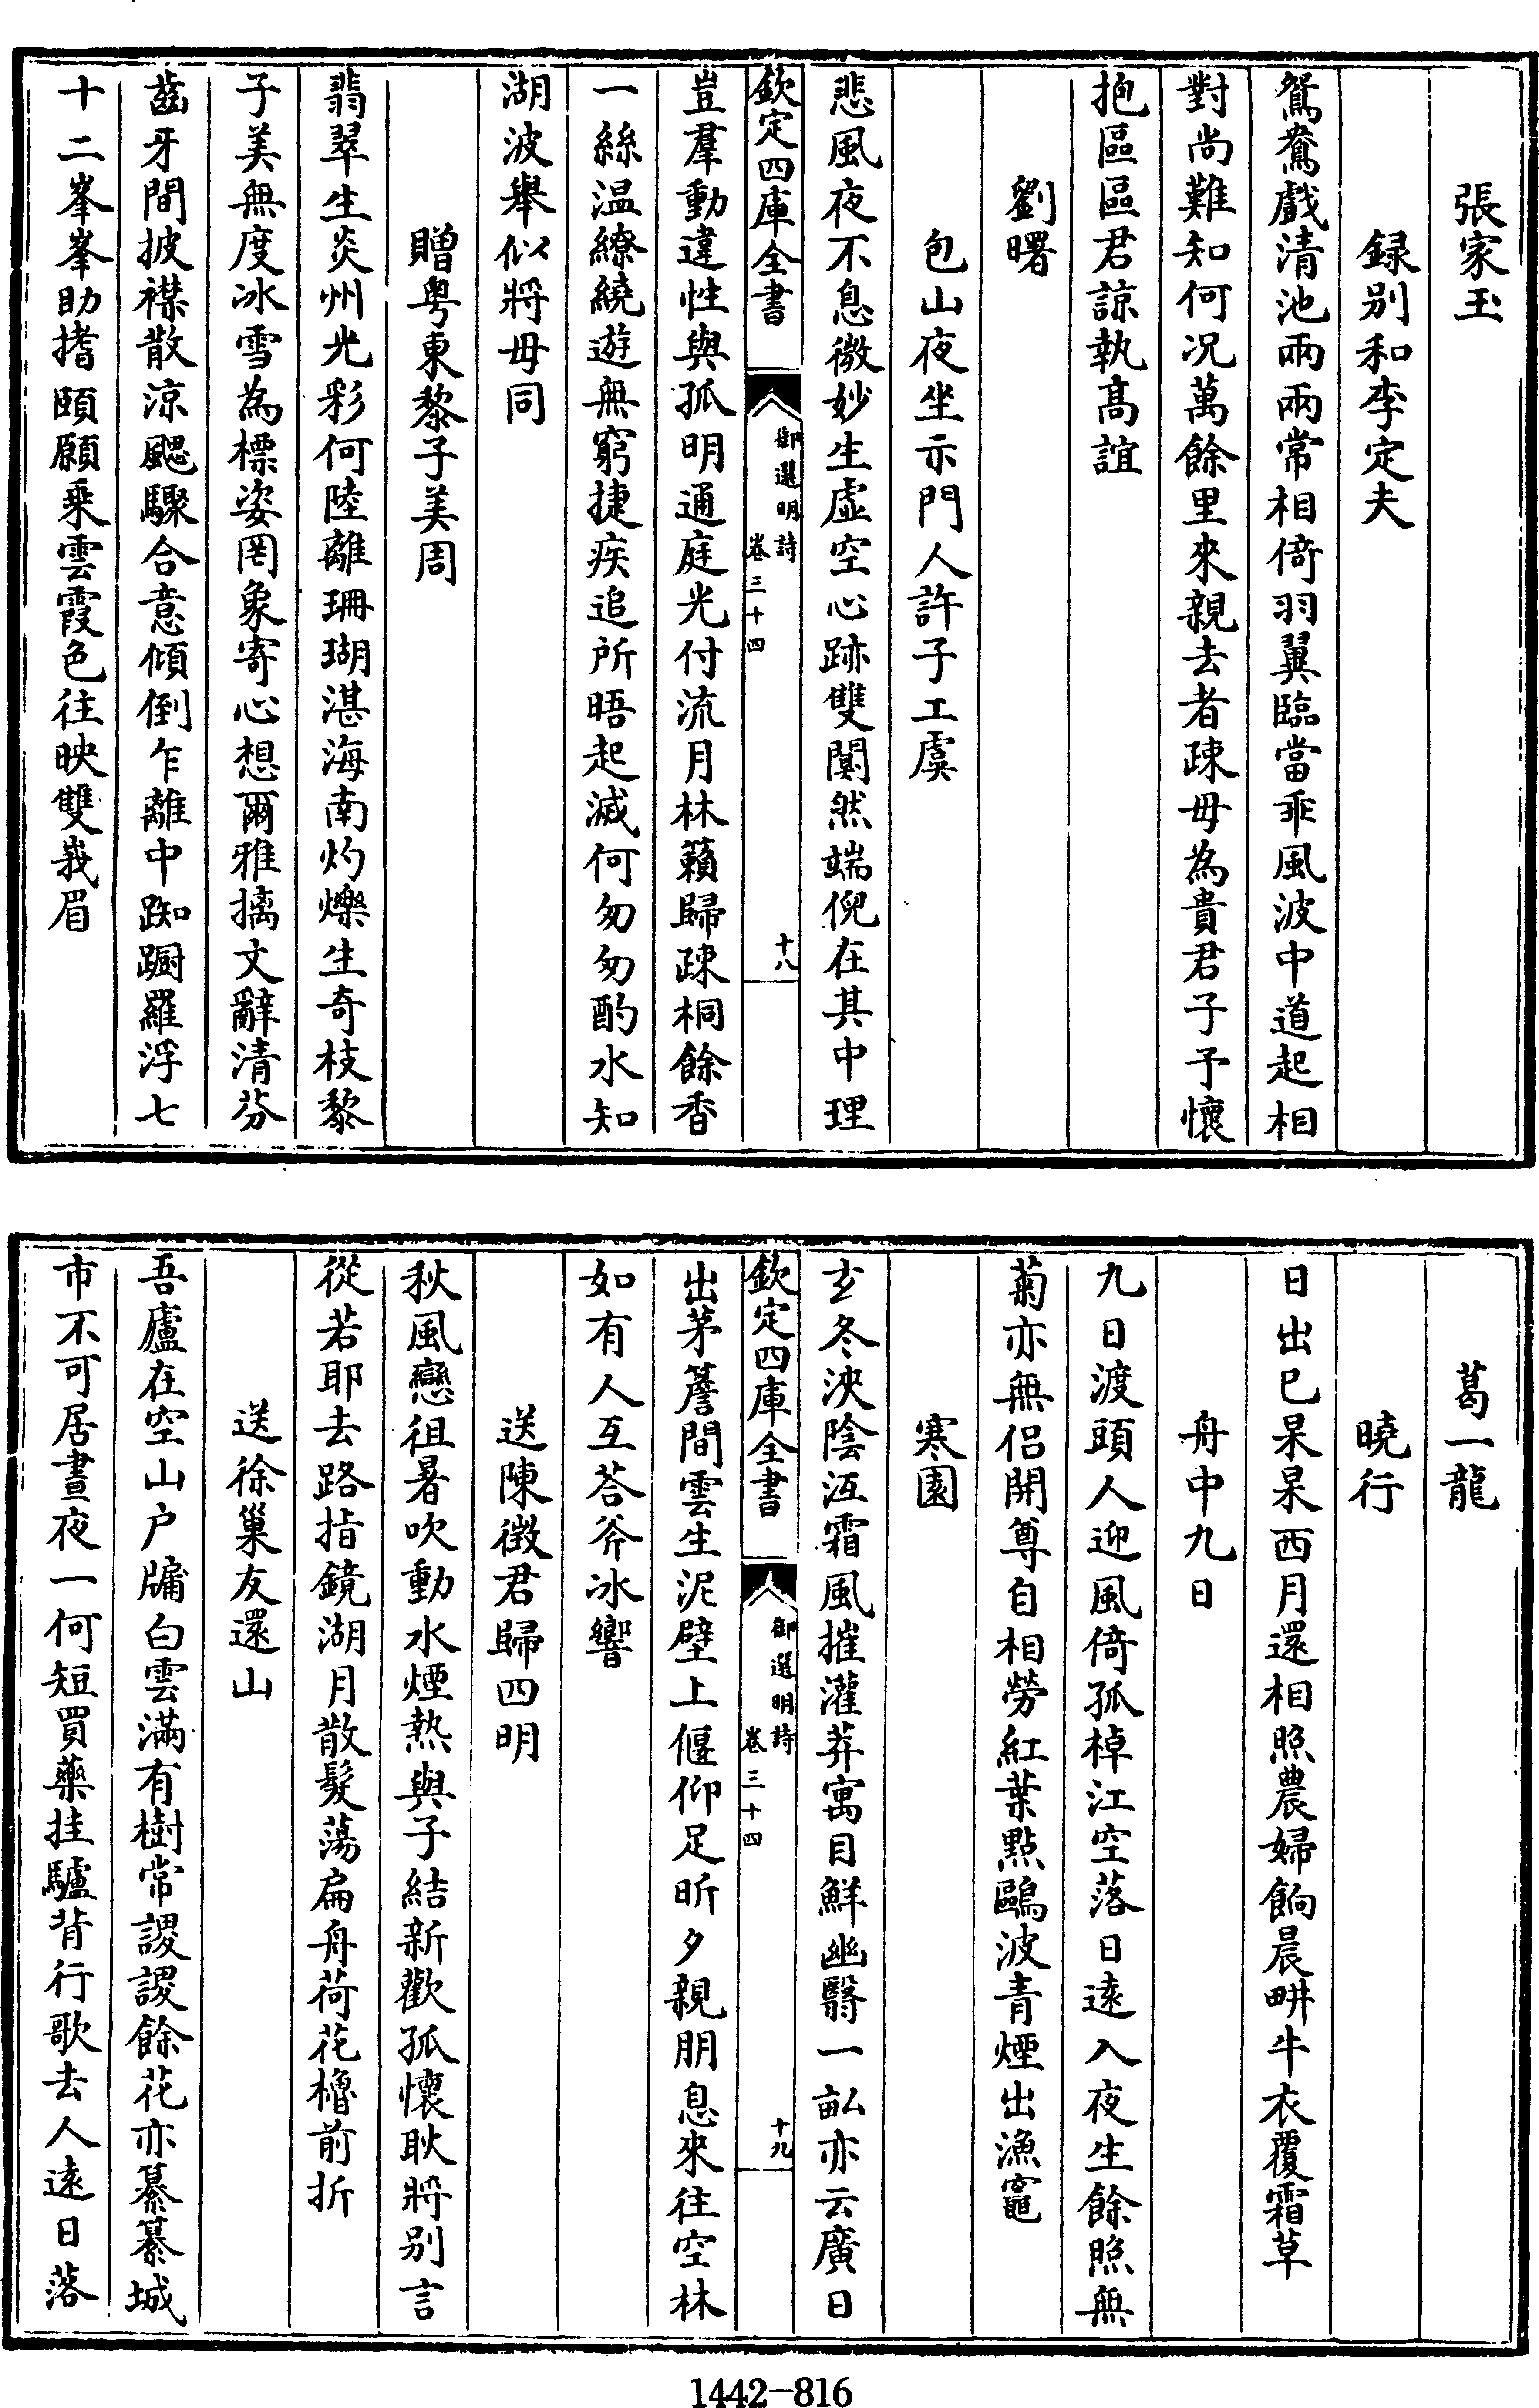 張家玉
録别和李定夫
鴛鴦戲清池兩兩常相倚羽翼臨當乖風波中道起相
對尚難知何况萬餘里來親去者疎毋為貴君子予懷
抱區區君諒執髙誼
劉曙
包山夜坐示門人許子工虞
悲風夜不息微妙生虚空心跡雙闃然端倪在其中理
欽定四庫全書
御選明詩
卷三十四
十八
豈羣動違性與孤明通庭光付流月林籟歸疎桐餘香
一絲温繚繞遊無窮捷疾追所晤起滅何匆匆酌水知
湖波舉似將毋同
贈粤東黎子美周
翡翠生炎州光彩何陸離珊瑚湛海南灼爍生奇枝黎
子美無度冰雪為標姿罔象寄心想爾雅摛文辭清芬
齒牙間披襟散涼颸驟合意傾倒乍離中踟蹰羅浮七
十二峯峯助撍頤願乘雲霞色往映雙峩眉
葛一龍
曉行
日出已杲杲西月還相照農婦餉晨畊牛衣覆霜草
舟中九日
九日渡頭人迎風倚孤棹江空落日遠入夜生餘照無
菊亦無侣開尊自相勞紅葉點鷗波青煙出漁竈
寒園
玄冬泱陰沍霜風摧灌莽寓目鮮幽翳一畝亦云廣日
欽定四庫全書
御選明詩
卷三十四
十九
出茅簷間雲生泥壁上偃仰足昕夕親朋息來往空林
如有人互荅斧冰響
送陳徴君歸四明
秋風戀徂暑吹動水煙熱與子結新歡孤懷耿將别言
從若耶去路指鏡湖月散髮蕩扁舟荷花櫓前折
送徐巢友還山
吾廬在空山户牖白雲滿有樹常謖謖餘花亦纂纂城
市不可居晝夜一何短買藥挂驢背行歌去人遠日落
1442-816